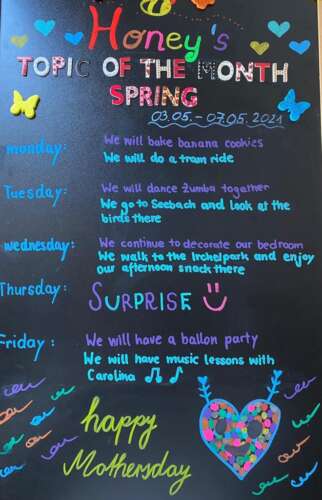 Honey's
TOPIC OF THE MONTH
SPRING
03.05. - 07.05.2021
monday: We will bake banana cookies
We will do a tram ride
Tuesday: We will dance Zumba together
We go to Seebach and look at the
birds there
wednesday: We continue to decorate our bedroom
We walk to the Irchelpark and enjoy
our afternoon snack there
Thursday: SURPRISE
Friday: We will have a ballon party
We will have music lessons with
Carolina
happy
Mothersday